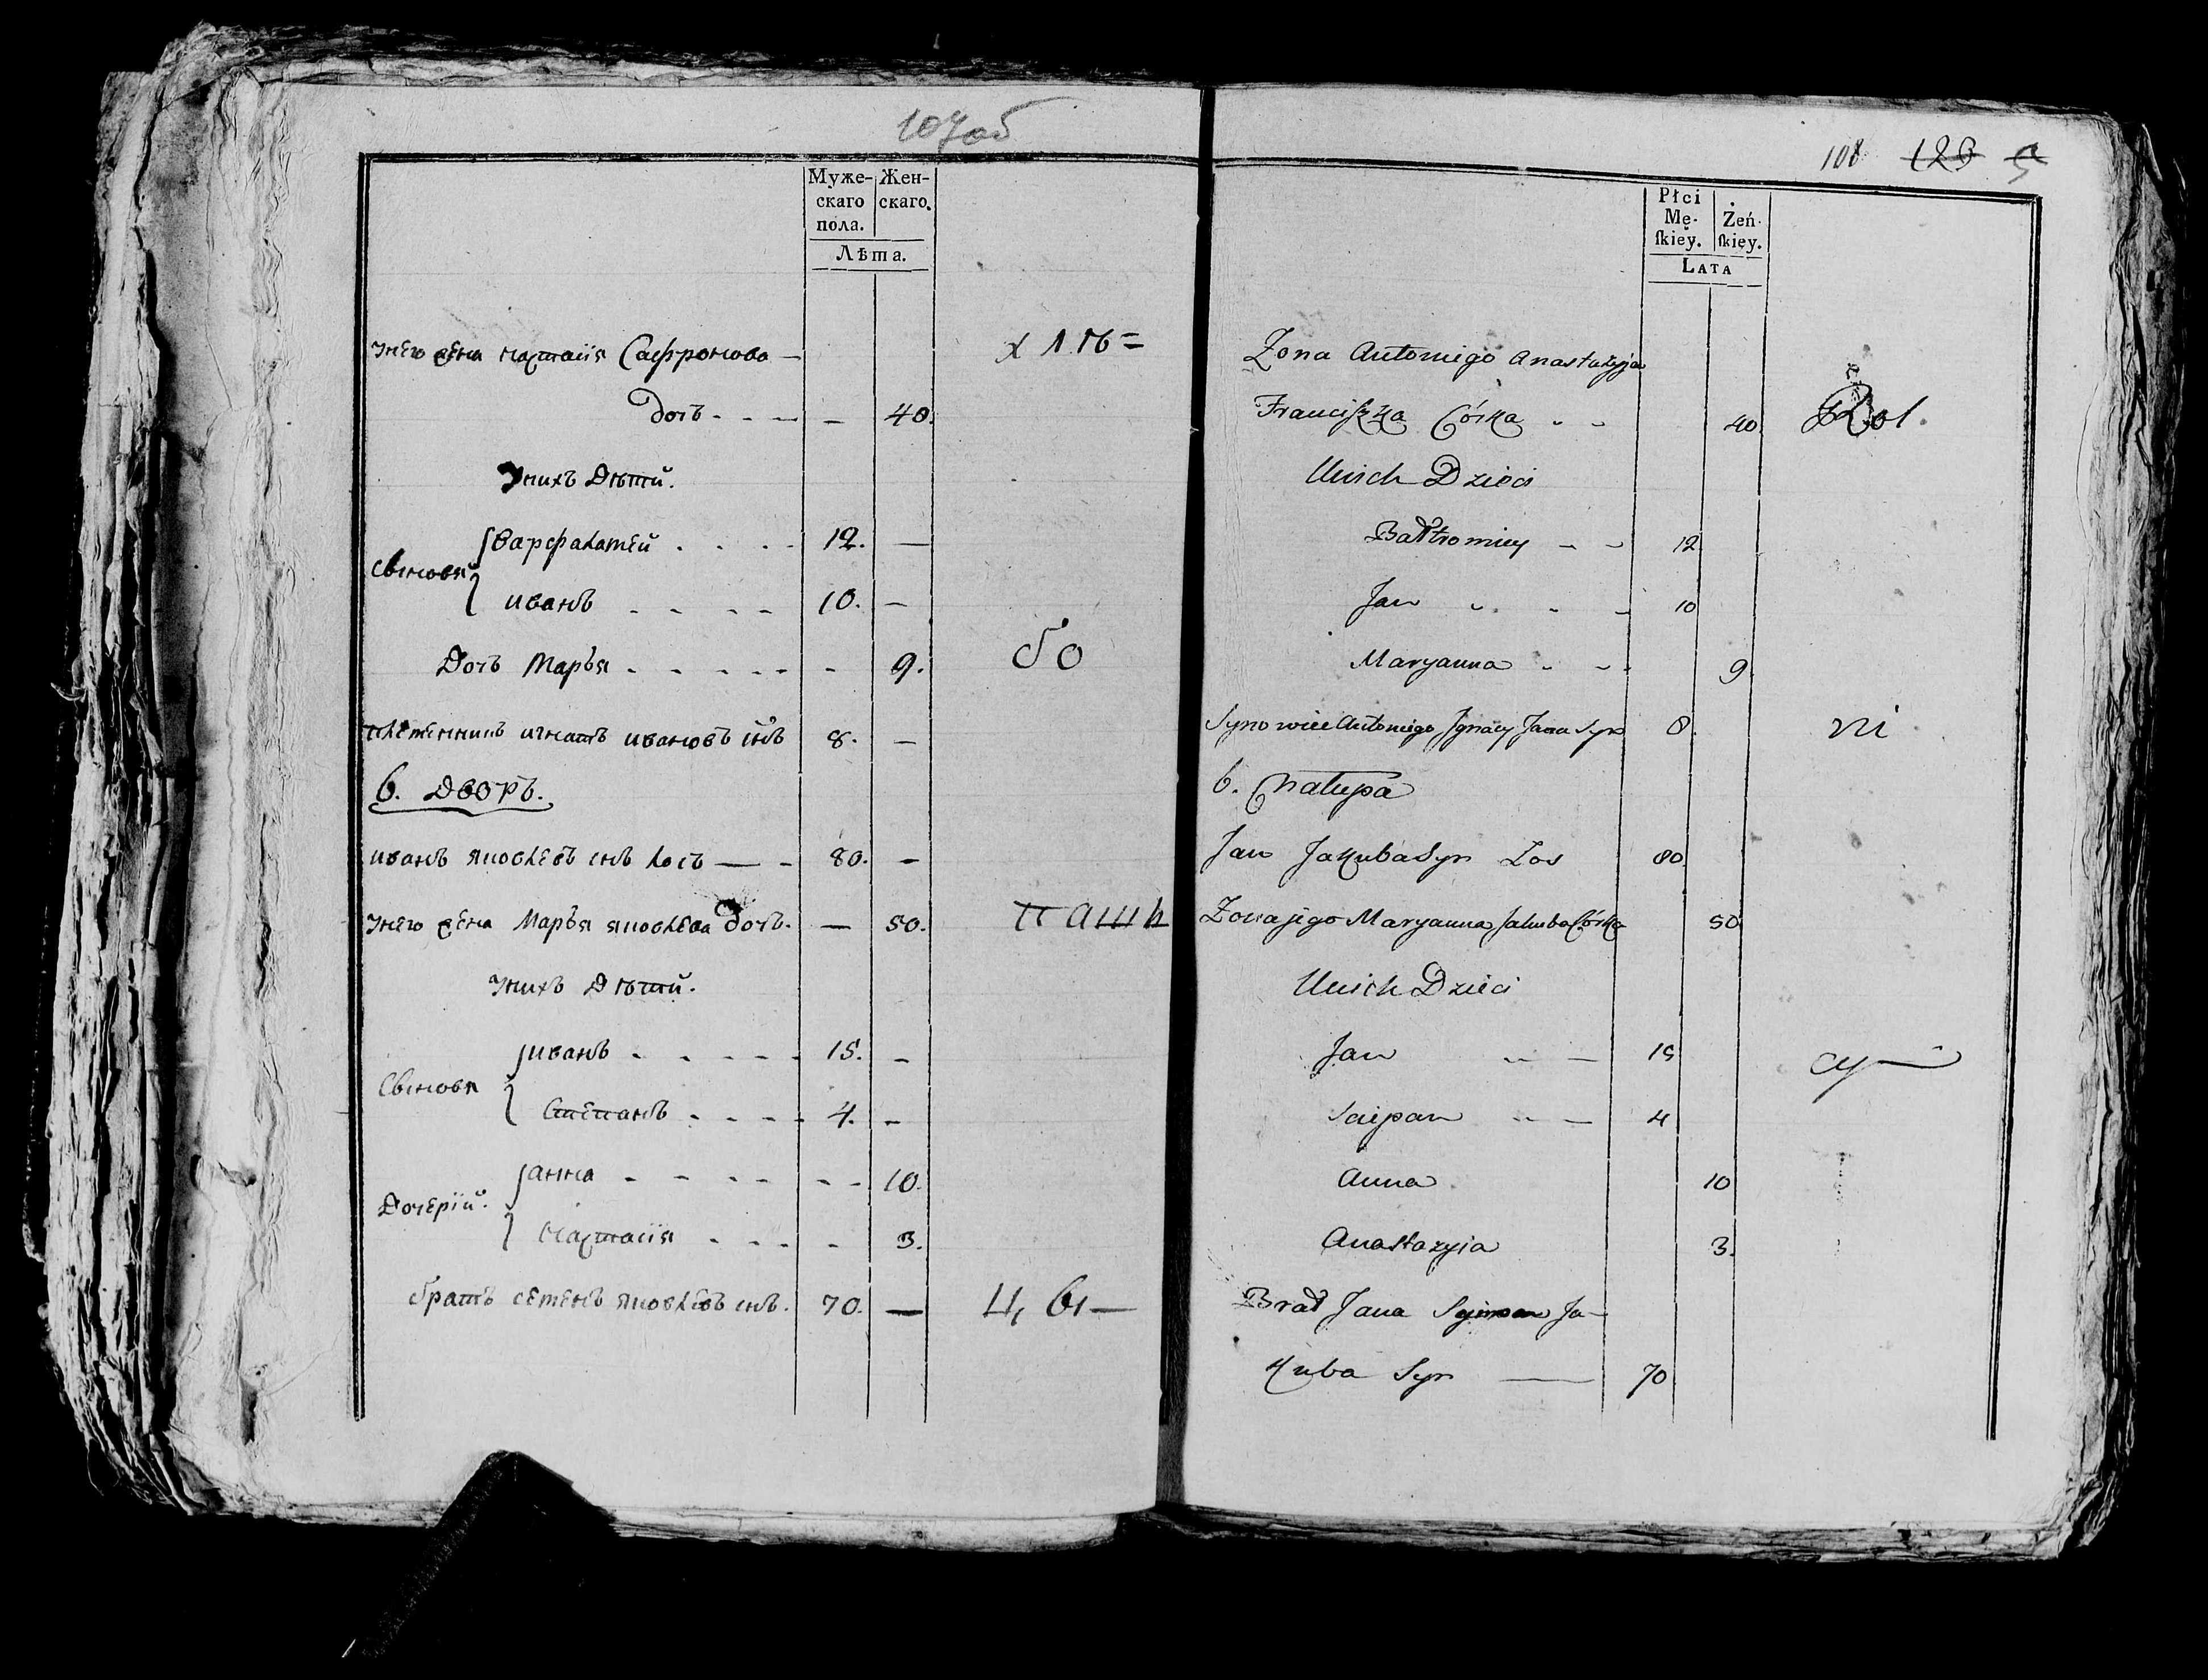 107об
Муже-
скаго
пола.
Жен-
скаго.
Лѣта.
У него жена Настасія Сафронова —
дочь - - - — 40.
У нихъ Дѣтей.
Сыновья
Варфаламей . . . . 12. —
Иванъ . - - - 10. —
Дочь Марья - - - - - - 9.
племенникъ игнатъ ивановъ снъ 8. —
6. Дворъ.
иванъ яковлевъ снъ лосъ — - 80. —
У него жена Марья яковлева дочь. — 50.
У нихъ Дѣтей.
Сыновья
иванъ . - - - - 15. -
Степанъ . - - - 4. -
Дочерій.
анна - - - - - - 10.
Настасія . - - - - 3.
братъ семенъ яковлевъ снъ. 70. —
хлѣ=
бо
паши
цы—
108 128
Płci
Mę-
ſkiey.
Żeń-
ſkiey.
LATA
Zona Antoniego Anastazyja
Franciſzka Córka - - 40
Unich Dzieci
Bałtromiey - - 12
Jan - - - 10
Maryanna - - - 9
Synowiec Antoniego Jgnacy Jana Syn 8.
6. Chałupa
Jan Jakuba Syn Łos 80
Zona jego Maryanna Jakuba Córka 50
Unich Dzieci
Jan - — 15
Sciepan - — 4
Anna 10
Anastazyia 3.
Brat Jana Symon Ja-
kuba Syn — 70
Rol.
ni
cy—